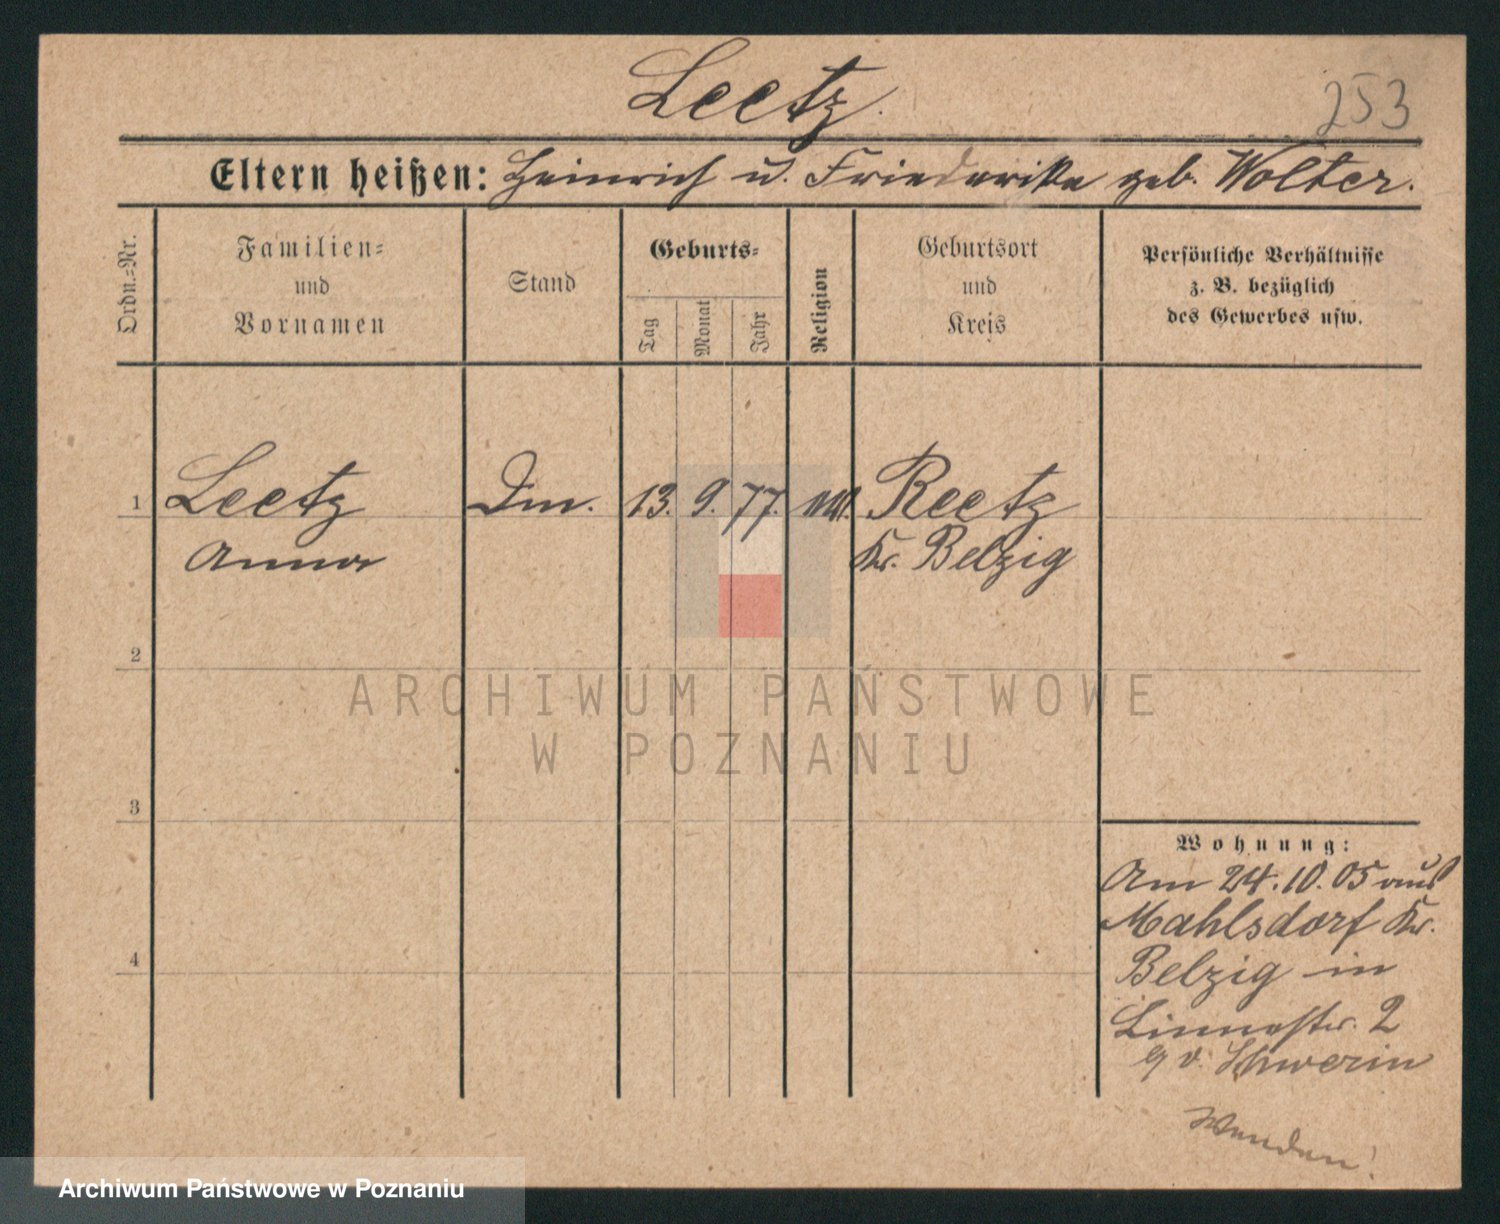 Leetz.
253
Eltern heißen: Heinrich u. Friederike geb. Wolter.
Ordn.=Nr.
Familien=
und
Vornamen
Stand
Geburts=
Tag
Monat
Jahr
Religion
Geburtsort
und
Kreis
Persönliche Verhältnisse
z. B. bezüglich
des Gewerbes usw.
1 Leetz Dm. 13. 9. 77. Reetz
Anna Kr. Belzig
2
3
4
Wohnung:
Am 24.10.05 aus
Mahlsdorf Kr.
Belzig in
Linnestr. 2
v. Schwerin
Wenden!
ARCHIWUM PAŃSTWOWE
W POZNANIU
Archiwum Państwowe w Poznaniu